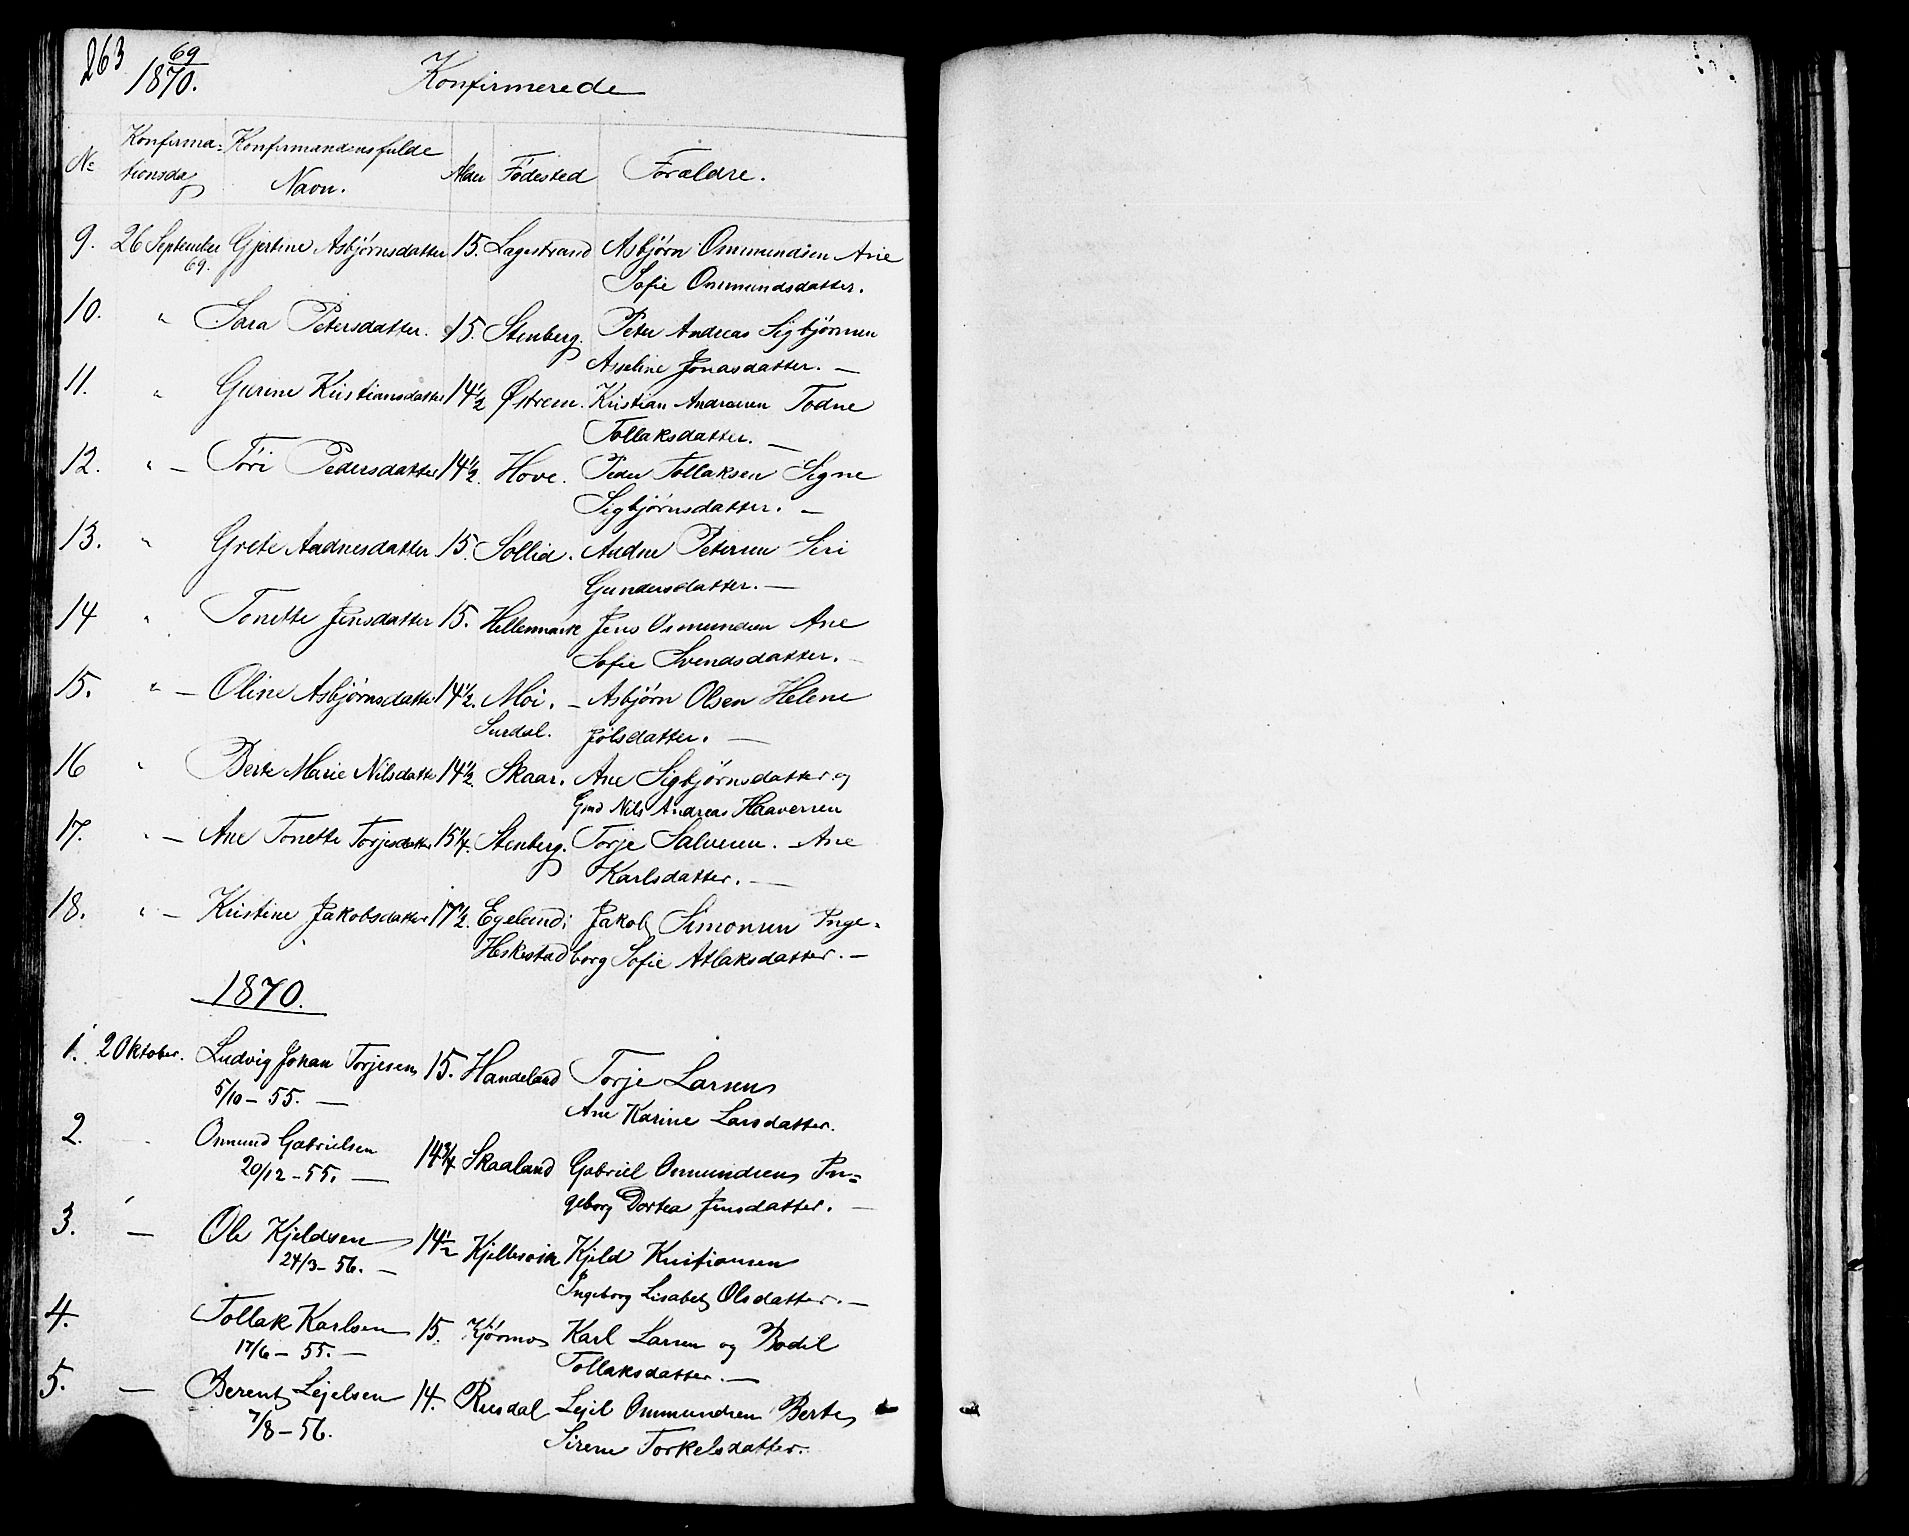 263
69
1870.
Konfirmerede
No Konfirma= Konfirmandens fulde Alder Födested Forældre.
tionsdag Navn.
9. 26 September Gjertine Asbjørnsdatter 15. Lagestrand Asbjørn Ommundsen Ane
69. Sofie Ommundsdatter.
10. " Sara Petersdatter. 15. Stenberg. Peter Andreas Sigbjørnsen
Asseline Jonasdatter. —
11. " Gurine Kristiansdatter 14 1/2 Østrem. Kristian Andersen Todne
Tollaksdatter. —
12. " — Töri Pedersdatter 14 1/2. Hove. Peder Tollaksen Signe
Sigbjørnsdatter. —
13. " Grete Aadnesdatter 15. Sollid. Aadne Petersen Siri
Gundersdatter. —
14 " Tonette Jensdatter 15. Hellenmark Jens Osmundsen Ane
Sofie Svendsdatter. —
15. " — Oline Asbjørnsdatter 14 1/2. Moi. — Asbjørn Olsen Helene
Surdal. Jölsdatter. —
16 " Berte Marie Nilsdatter 14 1/2. Skaar. Ane Sigbjørnsdatter og
Gmd Nils Andreas Haaversen
17. " — Ane Tonette Torjesdatter 15 1/4. Stenberg. Torje Salvesen. Ane
Karlsdatter. —
18. " — Kristine Jakobsdatter 17 1/2. Egeland i Jakob Simonsen Inge-
Heskestad borg Sofie Atlaksdatter. —
1870.
1. 2 Oktober. Ludvig Johan Torjesen 15. Handeland Torje Larsen
5/10 — 55. — Ane Karine Larsdatter.
2. " Omund Gabrielsen 14 3/4 Skaaland Gabriel Omundsen In=
20/12 — 55. — geborg Dortea Jensdatter. —
3. — Ole Kjeldsen 14 1/2 Kjellesvik Kjeld Kristiansen
24/3 — 56. — Ingeborg Lisabet Olsdatter. —
4. Tollak Karlsen 15. Kjørmo Karl Larsen og Bodil
17/6 — 55. — Tollaksdatter. —
5. — Berent Lejelsen 14. Rusdal Lejel Ommundsen Berte
7/8 — 56. Sirene Torkelsdatter.